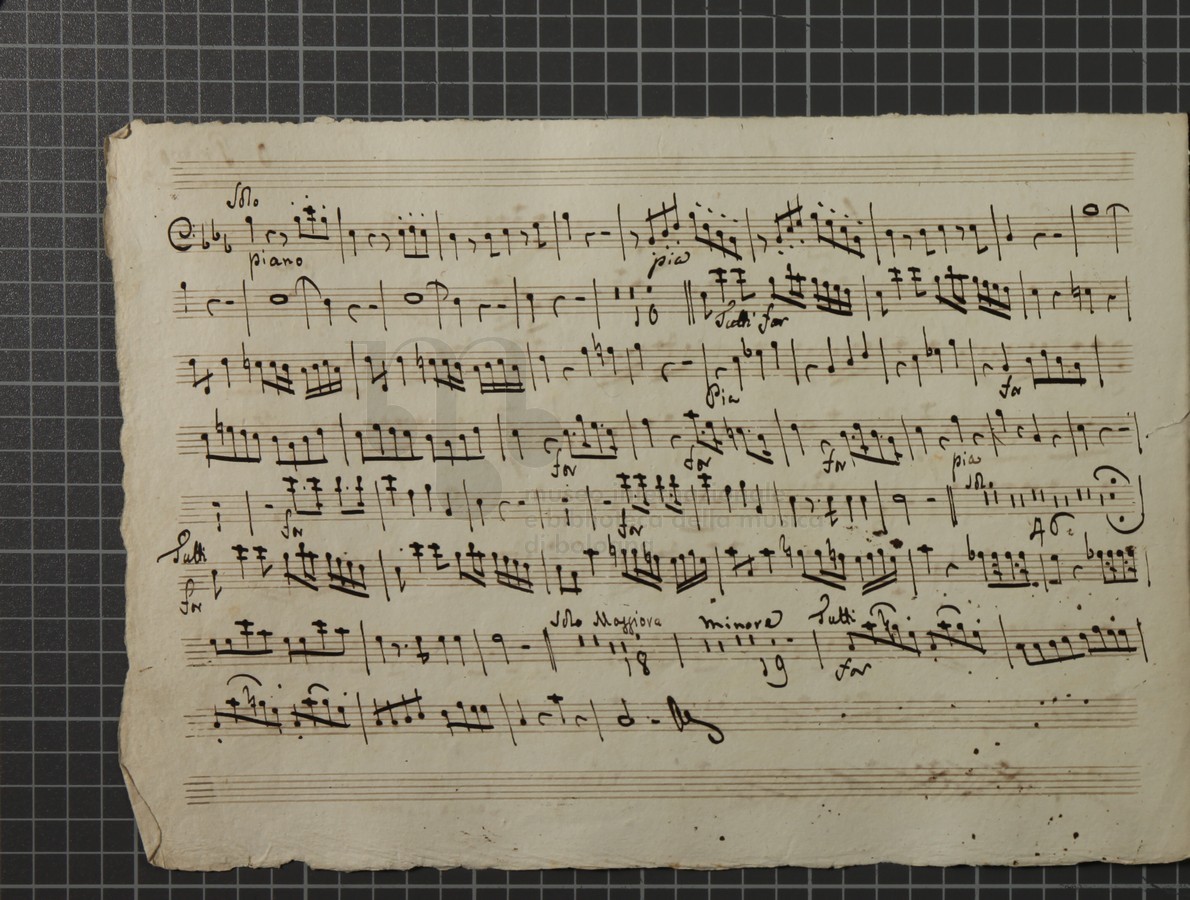 Solo
piano
pia
16
Tutti for
Pia
for
for
for
for
pia
Solo
for
for
Tutti
for
Solo Maggiore
18
minore
19
Tutti
for
museo internazionale
e biblioteca della musica
di bologna